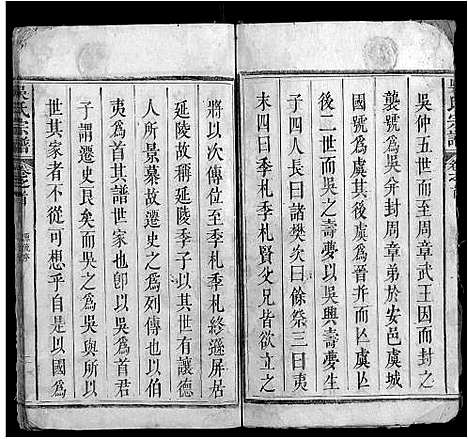 吳氏宗譜
吳仲五世而至周章武王因而封之
襲號爲吳弁封周章弟於安邑虞城
國號爲虞其後虞爲晉幷而亾虞亾
後二世而吳之壽夢以吳興壽夢生
四人長曰諸樊次曰餘祭三曰夷
末四曰季札季札賢父兄皆欲立之
將以次傳位至季札季札終遜屏居
延陵故稱延陵季子以其世有讓德
人所景慕故遷史之爲列傳也以伯
夷爲首其譜世家也卽以吳爲首君
子謂遷史良矣而吳之爲吳與所以
世其家者不從可想乎自是以國爲
吳氏宗譜
卷之首